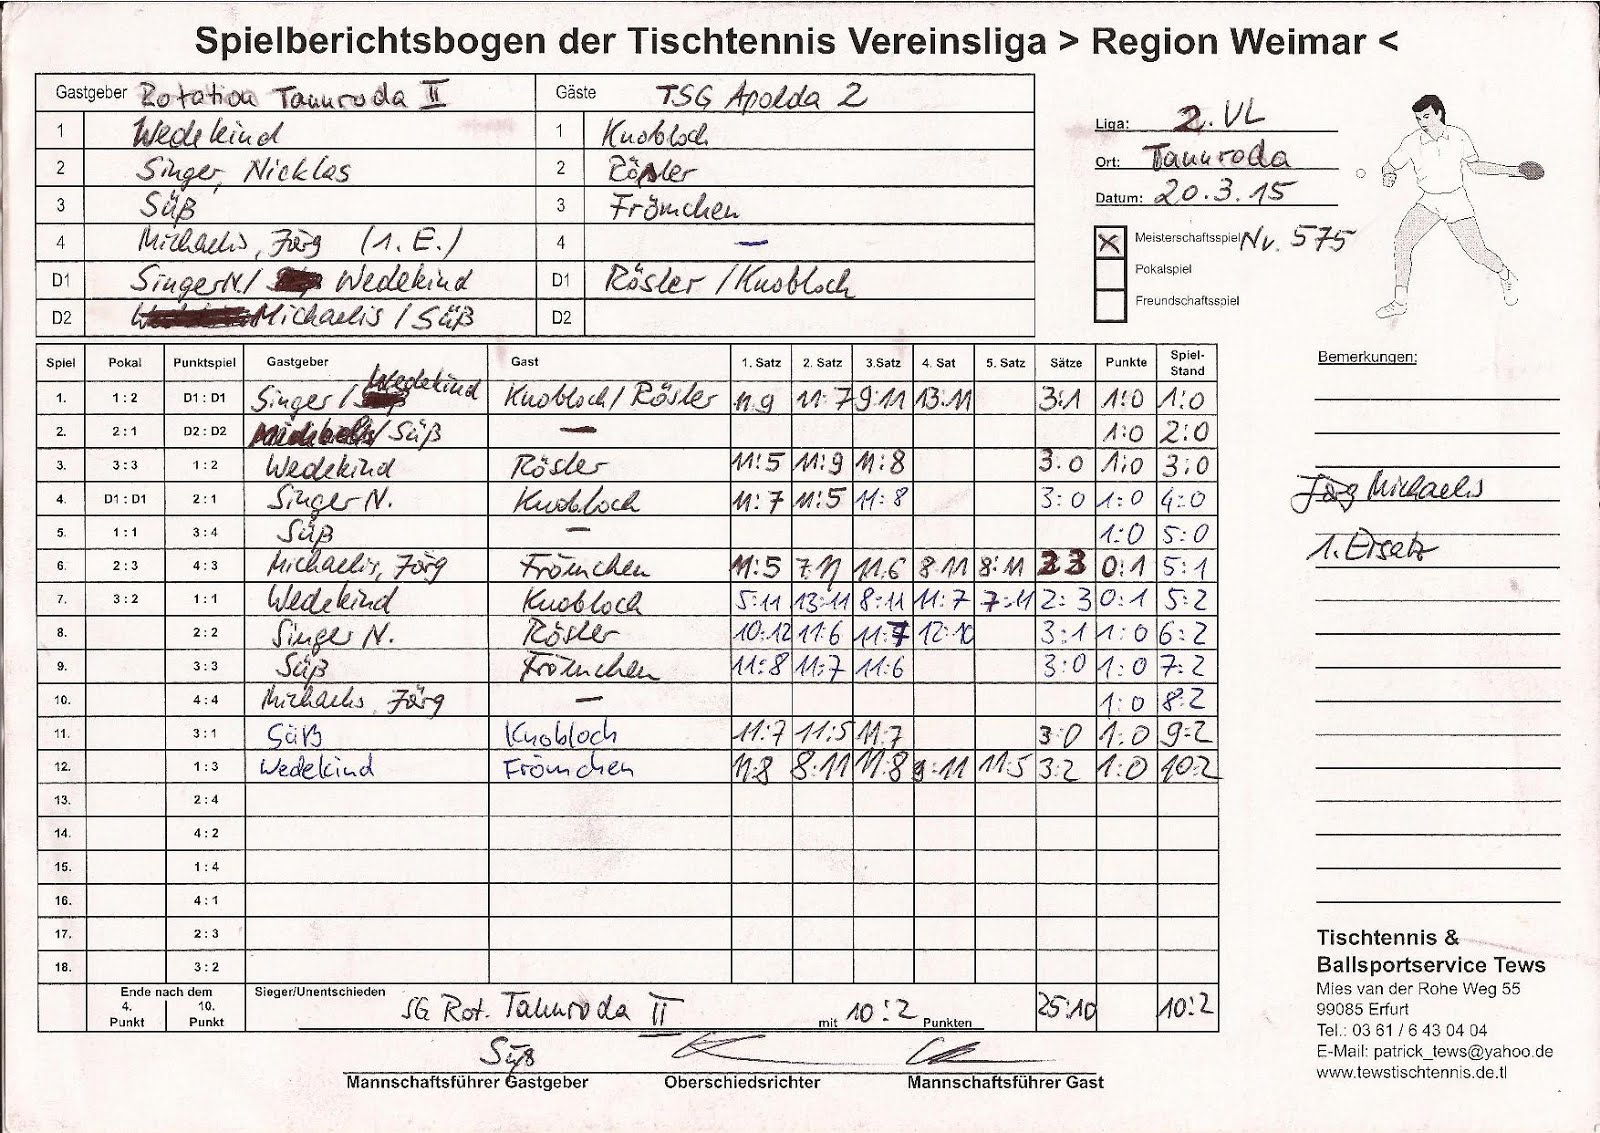 Spielberichtsbogen der Tischtennis Vereinsliga > Region Weimar <
Gastgeber Rotation Tannroda II Gäste TSG Apolda 2
1 Wedekind 1 Knobloch
2 Singer, Nicklas 2 Rösler
3 Süß 3 Frömchen
4 Michaelis, Jörg (1. E.) 4 –
D1 Singer N./ Wedekind D1 Rösler / Knobloch
D2 Michaelis / Süß D2
Liga: 2. VL
Ort: Tannroda
Datum: 20.3.15
X Meisterschaftsspiel Nr. 575
Pokalspiel
Freundschaftsspiel
Spiel Pokal Punktspiel Gastgeber Gast 1. Satz 2. Satz 3.Satz 4. Sat 5. Satz Sätze Punkte Spiel-Stand
1. 1 : 2 D1 : D1 Singer / Wedekind Knobloch / Rösler 11:9 11:7 9:11 13:11 3:1 1:0 1:0
2. 2 : 1 D2 : D2 Michaelis / Süß – 1:0 2:0
3. 3 : 3 1 : 2 Wedekind Rösler 11:5 11:9 11:8 3:0 1:0 3:0
4. D1 : D1 2 : 1 Singer N. Knobloch 11:7 11:5 11:8 3:0 1:0 4:0
5. 1 : 1 3 : 4 Süß – 1:0 5:0
6. 2 : 3 4 : 3 Michaelis, Jörg Frömchen 11:5 7:11 11:6 8:11 8:11 0:1 5:1
7. 3 : 2 1 : 1 Wedekind Knobloch 5:11 13:11 8:11 11:7 7:11 2:3 0:1 5:2
8. 2 : 2 Singer N. Rösler 10:12 11:6 11:7 12:10 3:1 1:0 6:2
9. 3 : 3 Süß Frömchen 11:8 11:7 11:6 3:0 1:0 7:2
10. 4 : 4 Michaelis, Jörg – 1:0 8:2
11. 3 : 1 Süß Knobloch 11:7 11:5 11:7 3:0 1:0 9:2
12. 1 : 3 Wedekind Frömchen 11:8 8:11 11:8 9:11 11:5 3:2 1:0 10:2
13. 2 : 4
14. 4 : 2
15. 1 : 4
16. 4 : 1
17. 2 : 3
18. 3 : 2
Ende nach dem Sieger/Unentschieden SG Rot. Tannroda II mit 10:2 Punkten 25:10 10:2
4. 10.
Punkt Punkt
Süß
Mannschaftsführer Gastgeber Oberschiedsrichter Mannschaftsführer Gast
Bemerkungen:
Jörg Michaelis
1. Ersatz
Tischtennis &
Ballsportservice Tews
Mies van der Rohe Weg 55
99085 Erfurt
Tel.: 03 61 / 6 43 04 04
E-Mail: patrick_tews@yahoo.de
www.tewstischtennis.de.tl